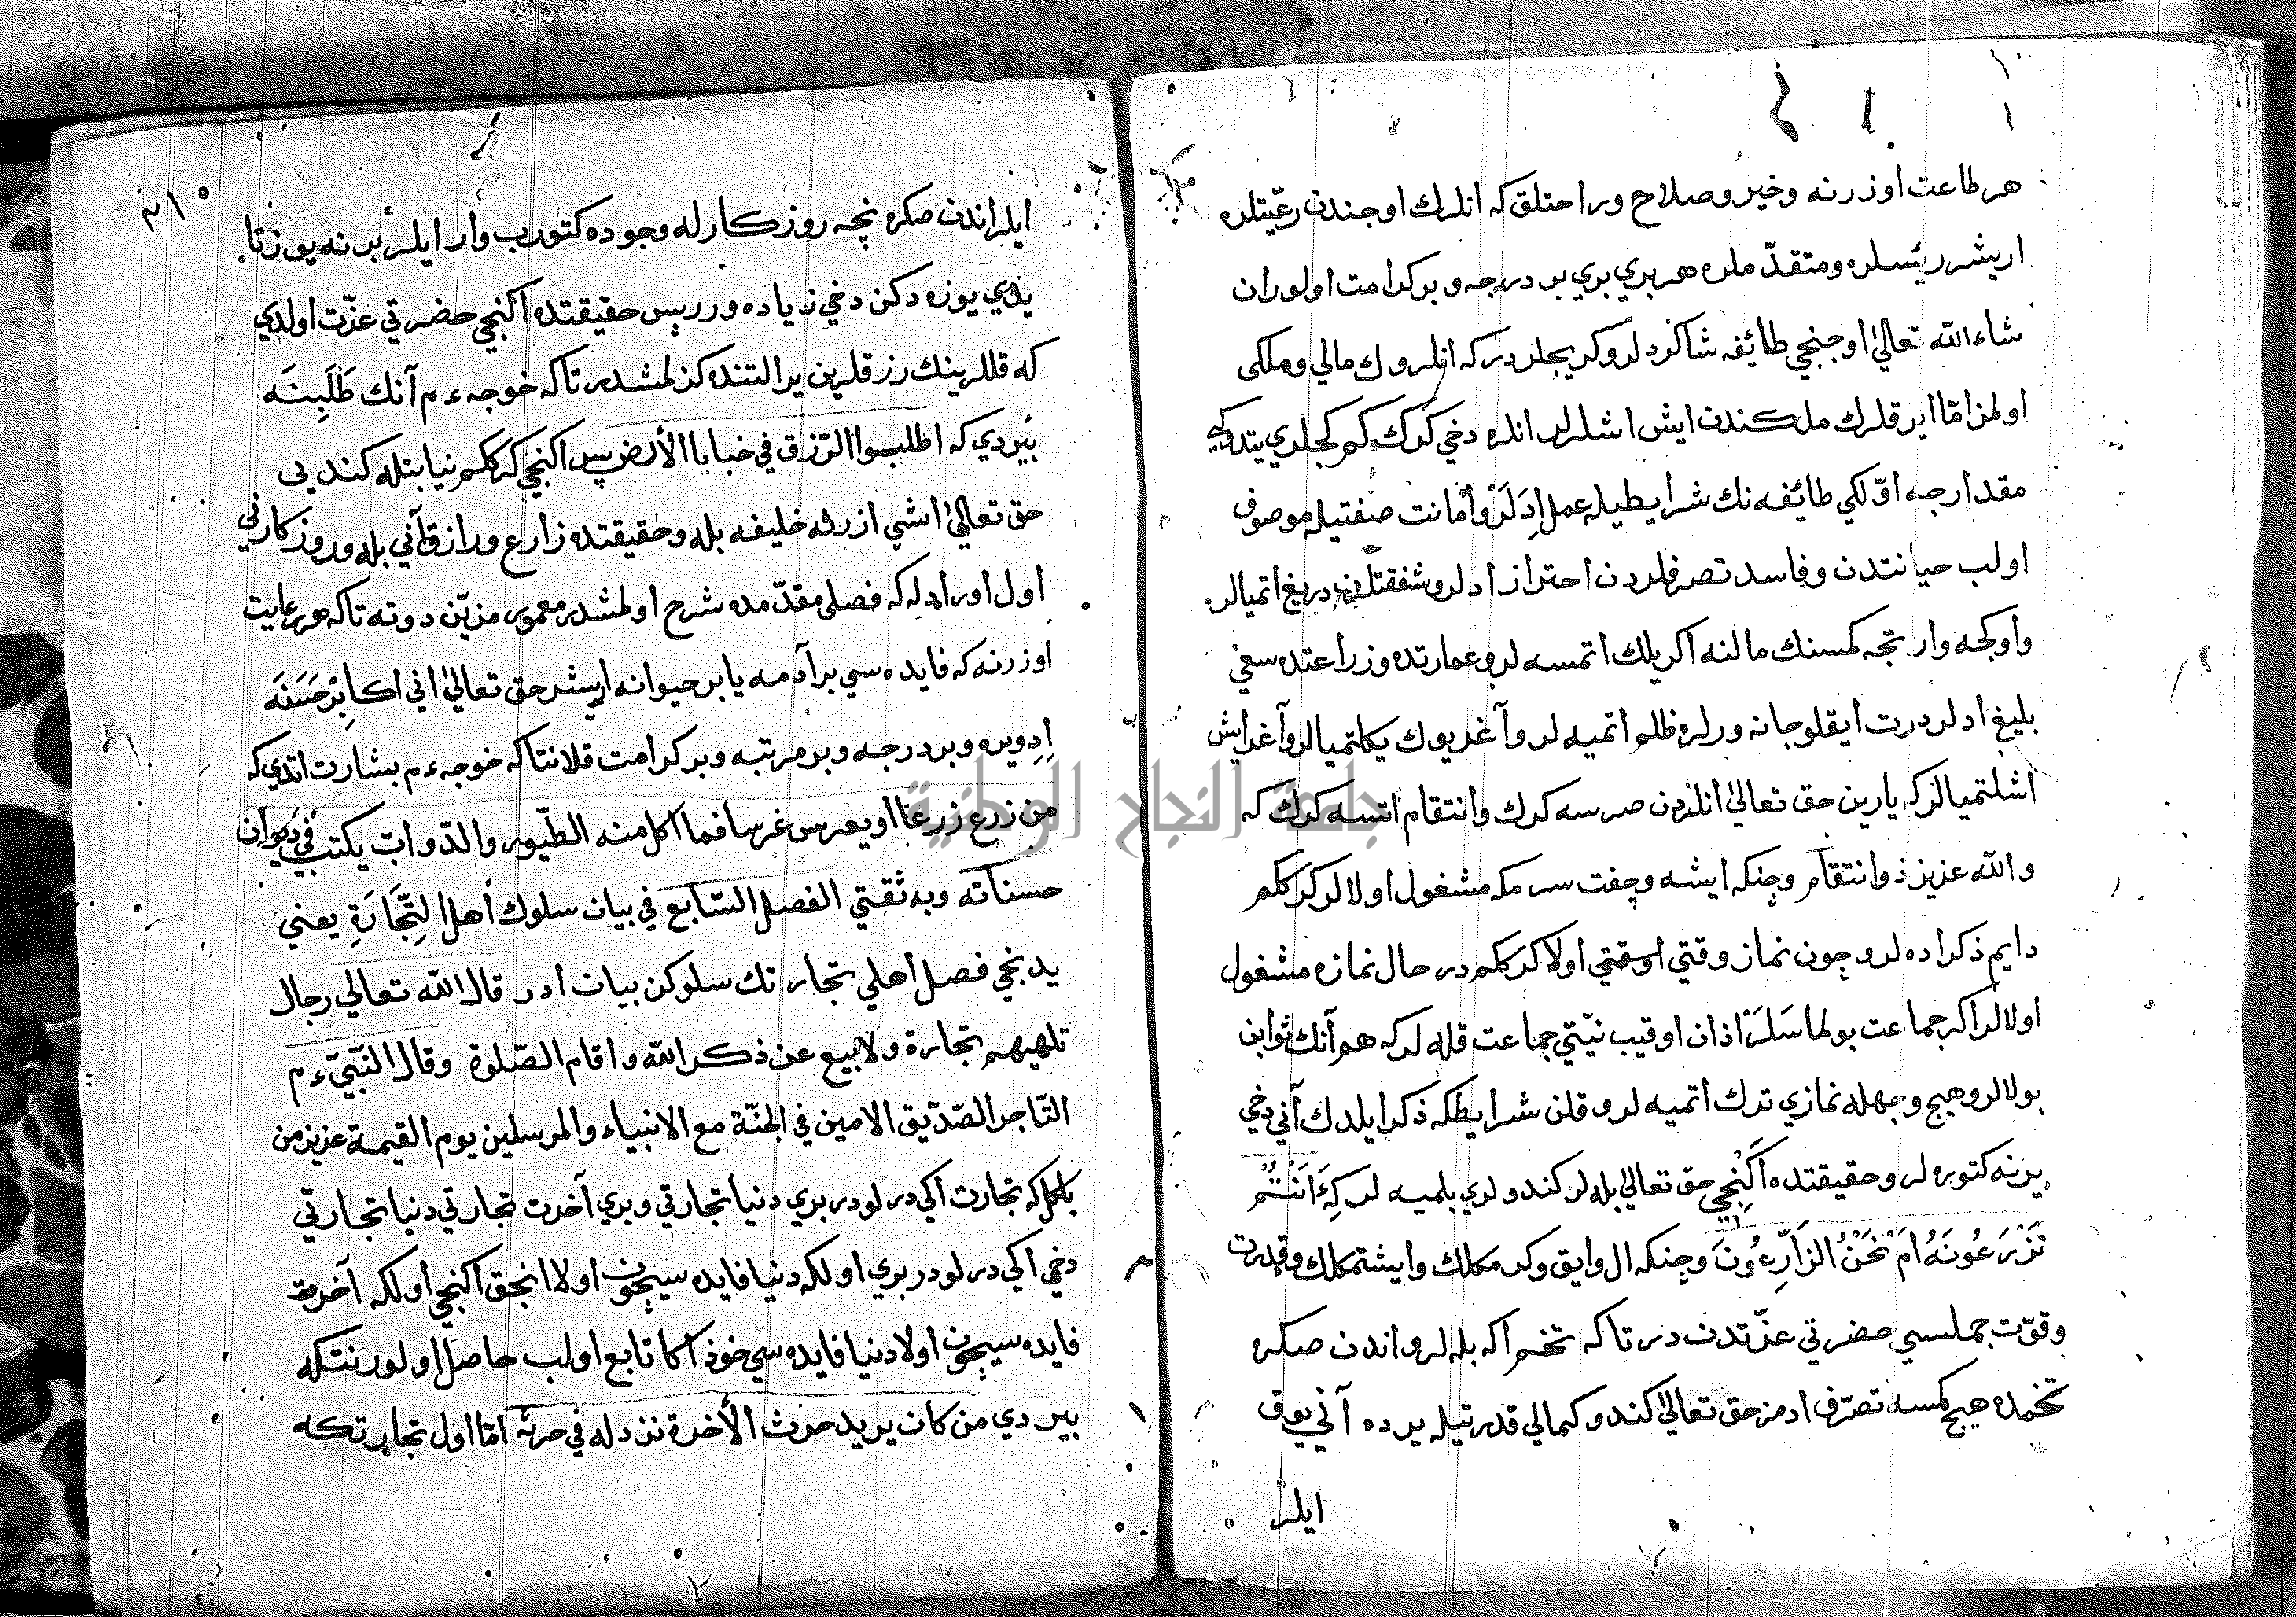 هر طاعت اوزرنه وخير وصلاح وراحتلق كه انلرك اوجندن رعّيتلره
اريشر رئيسلره ومتقدّملره هر بري بري بر درجه وبر كرامت اولور ان
شاء الله تعالىٰ اوجنجي طائفه شاكردلر وكريجلردر كه انلروك مالي وملكى
اولمز امّا ايرقلرك ملكندن ايش اشلرلر انلره دخي كرك كم كجلري يتدكي
مقدارجه اوّلكي طائفه نك شرايطيله عمل اِدَلَرْ وأمانت صفتيله موصوف
اولب حيانتدن وفاسد تصرفلردن احتراز ادلر وشفقتلرين دريغ اتميالر
واوكجه وارنجه كمسنك مالنه اكريلك اتمسه لر وعمارتده وزراعتده سعي
بليغ ادلر درت ايقلو جانه ورلره ظلم اتميه لر وآغر يوك يكلتميالر وآغر ايش
اشلتميالر كه يارين حق تعالىٰ انلردن صرسه كرك وانتقام اتسه كرك كه
والله عزيز ذوانتقام وچنكه ايشه وچفت سرمكه مشغول اولالر كركلم
دايم ذكر اده لر وچون نماز وقتي اوقتي اولا كركلم در حال نمازه مشغول
اولالر اكر جماعت بولماسَلَرْ اذان اوقيب نيّتي جماعت قله لر كه هم آنك ثوابن
بولالر وهيچ وجهله نمازي ترك اتميه لر وقلن شرايطكه ذكر ايلدك آني دخي
يرنه كتوره لر وحقيقتده اَكِنْجِي حق تعالىٰ بله لر كندولري بلميه لر كِهَ اَنْتُمْ
تَزْرَعُونَهُ اَمْ نَحْنُ الزَّارِعُونَ وچنكه ال وايق وكرمكلك وايشتمكلك وقدرت
وقوّت جملسي حضرتي عزّتدن در تا كه تخم اكه بله لر واندن صكره
تخمده هيچ كمسه تصرّف ادمز حق تعالىٰ كندو كمالي قدرتيله يرده آني يوق
ايلر
٢١٥
ايلر اندن صكره نچه روزكارله وجوده كتورب وار ايلر بر نه يوز تا
يدي يوزه دكن دخي زياده ورر پس حقيقتده اكنجي حضرتي عزّت اولدي
كه قللرينك رزقلرين ير التنده كزلمشدر تا كه خوجه ءم آنك طَلَبِنَه
بيردي كه اطلبوا الرّزق في خبايا الأرض پس اكنجي كركلم نيابتله كندىى
حق تعالىٰ انشي ازرنه خليفه بله وحقيقتده زارع ورازق آني بله وروزكارني
اول اورادله كه فصلي مقدّمده شرح اولمشدر معمور مزيّن دوته تا كه هر رعايت
اوزرنه كه فايده سي بر آدمه يا بر حيوانه اريشر حق تعالىٰ اني اكا بِرْ حَسَنَه
اِدِويره وبر درجه وبر مرتبه وبر كرامت قلا نتا كه خوجه ءم بشارت اتدي كه
من زرع زرعا او يعرس غرسا فما اكل منه الطّيور والدّوابّ يكتب في ديوان
حسناته وبه ثقتي الفصل السّابع في بيان سلوك أهل التِّجَارَةِ يعني
يدنجي فصل أهلي تجارتك سلوكن بيان أدر قال الله تعالي رجال
تلهيهم تجارة ولا بيع عن ذكر الله واقام الصّلوة وقال النّبيّ ءم
التّاجر الصّدّيق الامين في الجنّة مع الانبياء والمرسلين يوم القيمة عزيز من
بلكل كه تجارت اكي درلودر بري دنيا تجارتي وبري آخرت تجارتي دنيا تجارتي
دخي اكي درلودر بري اولكه دنيا فايده سيچون اولا انجق اكنجي اولكه آخرت
فايده سيچون اولا دنيا فايده سي خوذ اكا تابع اولب حاصل اولور نتكه
بيردي من كان يريد حرث الأخرة نزد له في حرثه امّا اول تجارتكه
جامعة النجاح الوطنية